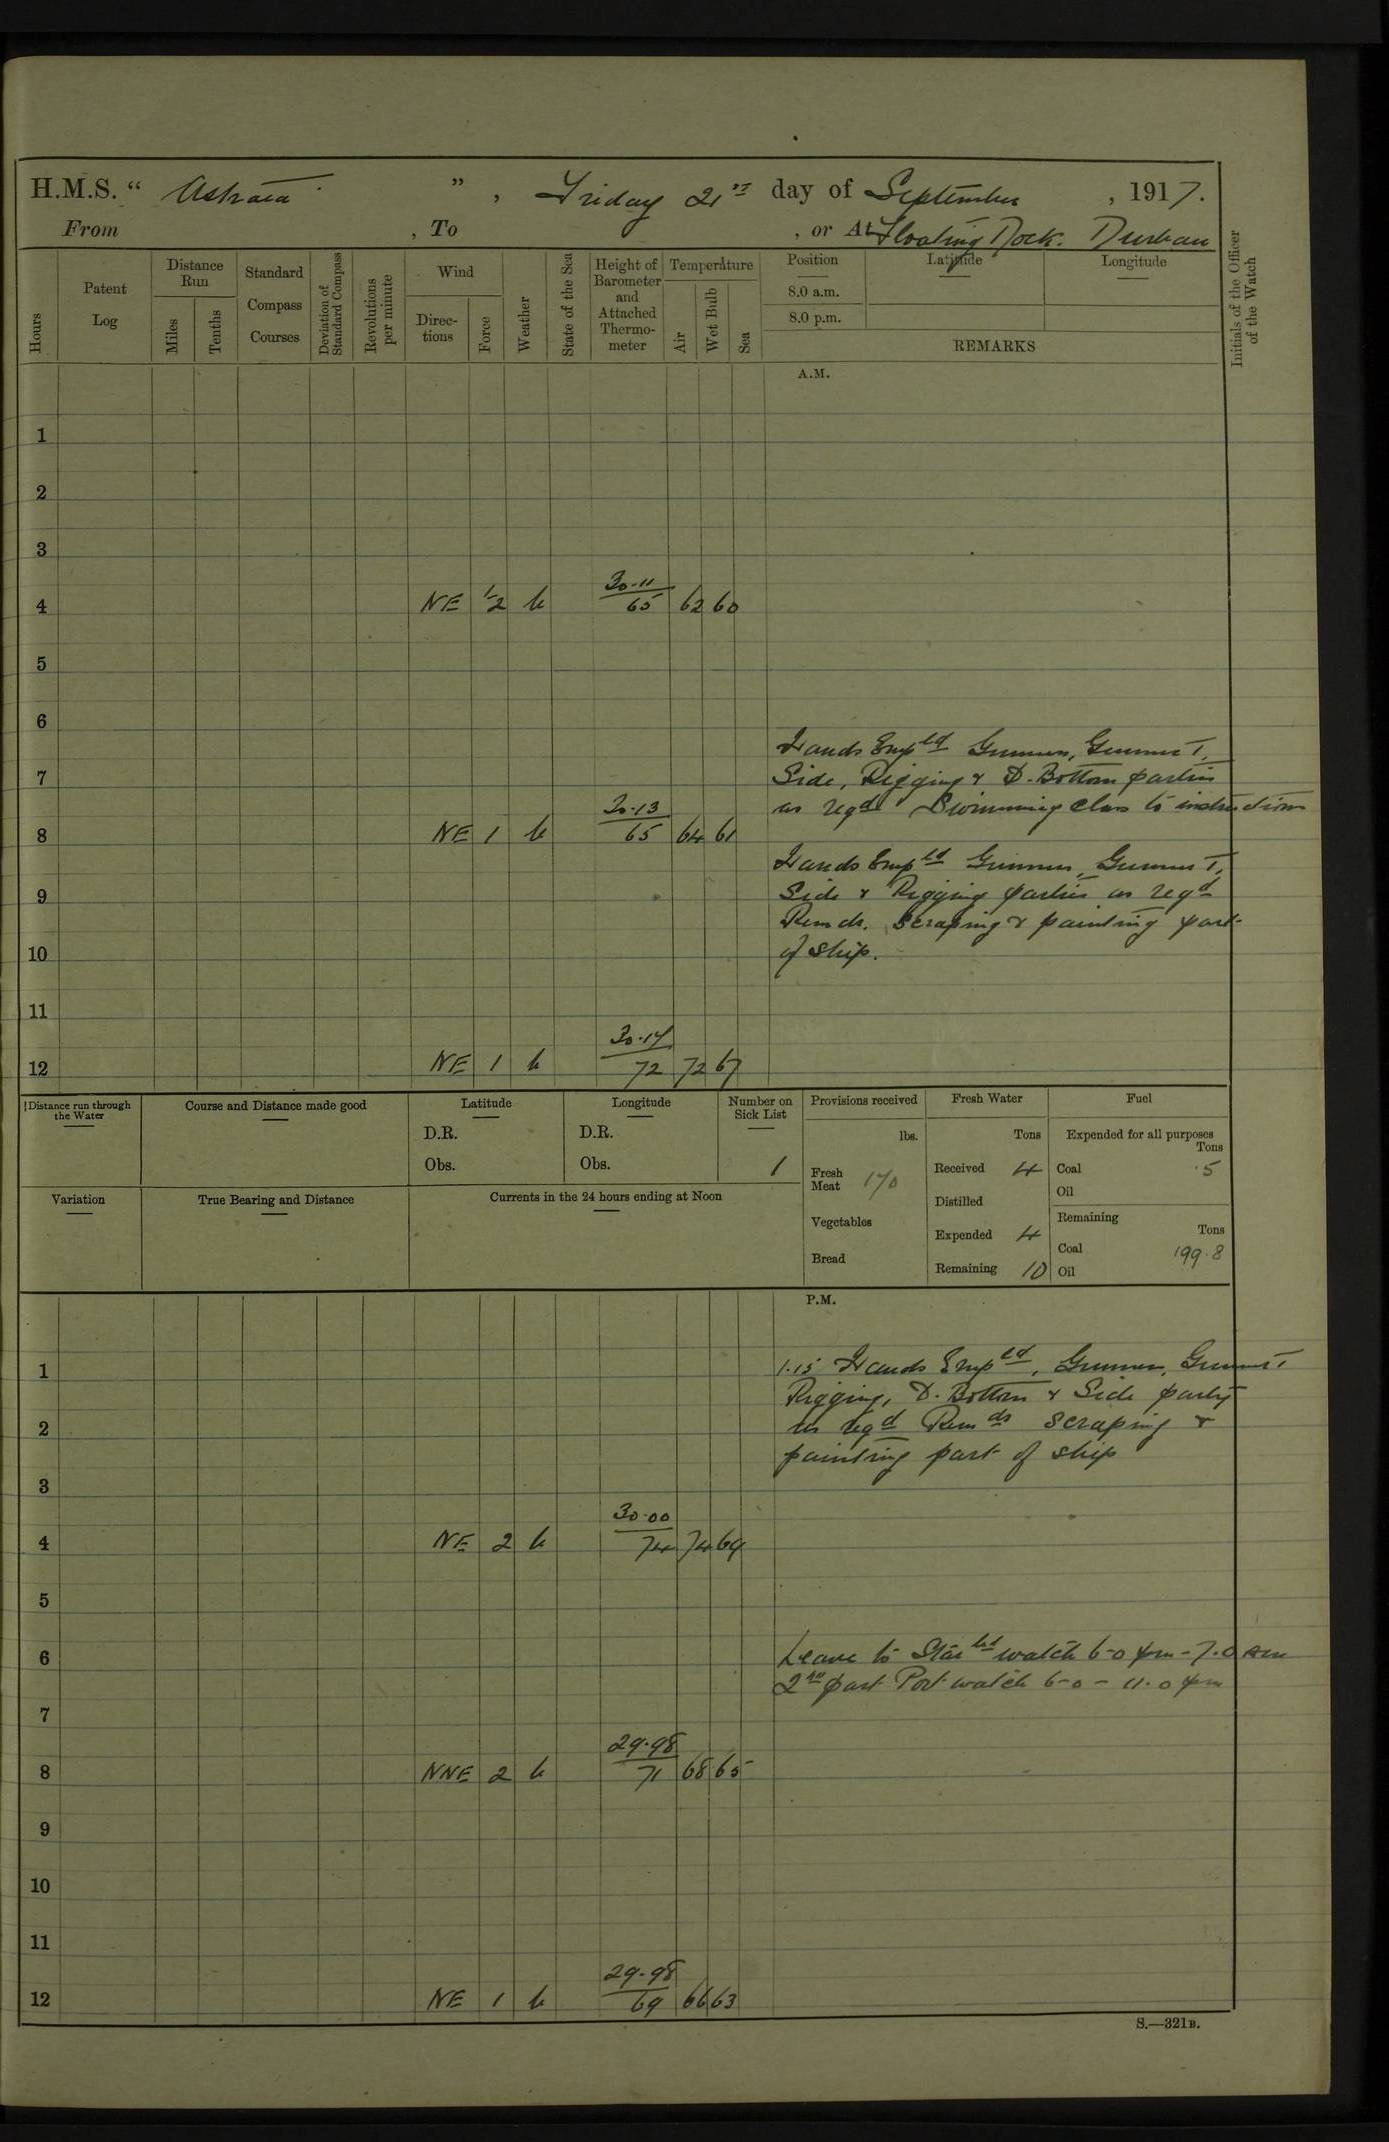 H.M.S. “ Astraea ” , Friday 21st day of September , 1917.
From , To , or At Floating Dock. Durban
Hours
Patent Log
Distance Run
Miles
Tenths
Standard Compass Courses
Deviation of Standard Compass
Revolutions per minute
Wind
Direc-tions
Force
Weather
State of the Sea
Height of Barometer and Attached Thermo-meter
Temperature
Air
Wet Bulb
Sea
Position
8.0 a.m.
8.0 p.m.
Latitude
Longitude
REMARKS
Initials of the Officer of the Watch
A.M.
1
2
3
30.11
4 NE 1/2 b 65 62 60
5
6
Hands Empld Gunners, Gunner T,
7 Side, Rigging & D. Bottom parties
as reqd Swimming Class to instruction
30.13
8 NE 1 b 65 64 61
Hands Empld Gunners, Gunner T,
9 Side & Rigging parties as reqd
Remdr. Scraping & painting part
10 of ship.
11
30.14
12 NE 1 b 72 72 67
Distance run through the Water
Course and Distance made good
Latitude
D.R.
Obs.
Longitude
D.R.
Obs.
Number on Sick List
1
Provisions received
lbs.
Fresh Meat 170
Vegetables
Bread
Fresh Water
Tons
Received 4
Distilled
Expended 4
Remaining 10
Fuel
Expended for all purposes
Tons
Coal .5
Oil
Remaining
Tons
Coal 199.8
Oil
Variation
True Bearing and Distance
Currents in the 24 hours ending at Noon
P.M.
1 1.15 Hands Empld, Gunner, Gunner T
Rigging, D. Bottom & Side party
2 as reqd Remdr Scraping &
painting part of ship
3
30.00
4 NE 2 b 74 74 69
5
6 Leave to Starbd watch 6-0 pm - 7.0 am
2nd part Port watch 6-0 - 11.0 pm
7
29.98
8 NNE 2 b 71 68 65
9
10
11
29.98
12 NE 1 b 69 66 63
S.—321B.